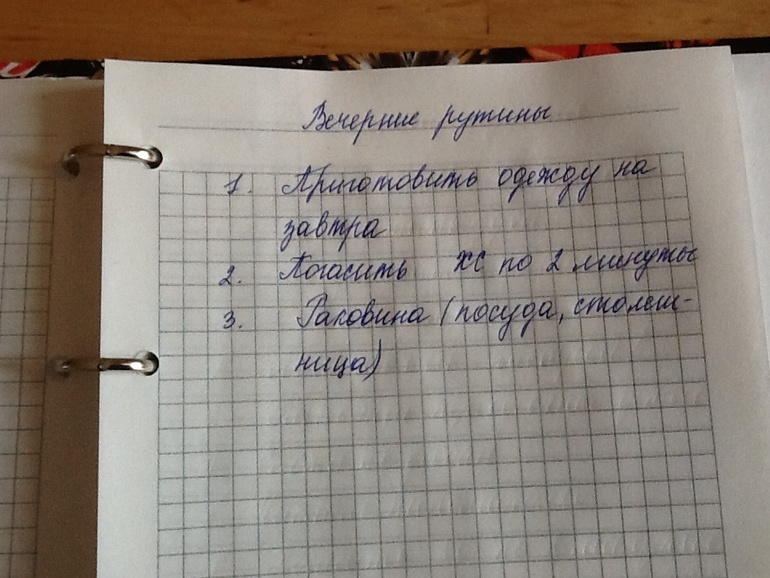 Вечерние рутины
1. Приготовить одежду на
завтра
2. Погасить ХС по 2 минуты
3. Раковина (посуда, столеш-
ница)